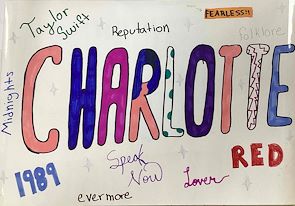 FEARLESS!!
Taylor
Swift
Reputation
Folklore
Midnights
CHARLOTTE
1989
Speak
Now
Lover
RED
evermore